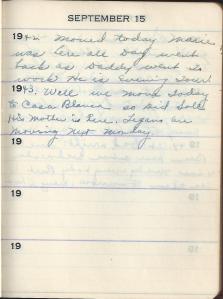 SEPTEMBER 15
1942 Moved today. Marie
was here all day went
back as Daddy went to
work He is Evening Tour
1943. Well we move today
to Casa Blanca so did Sols
His Mother is here. Legans are
19 moving next Monday.
19
19
19